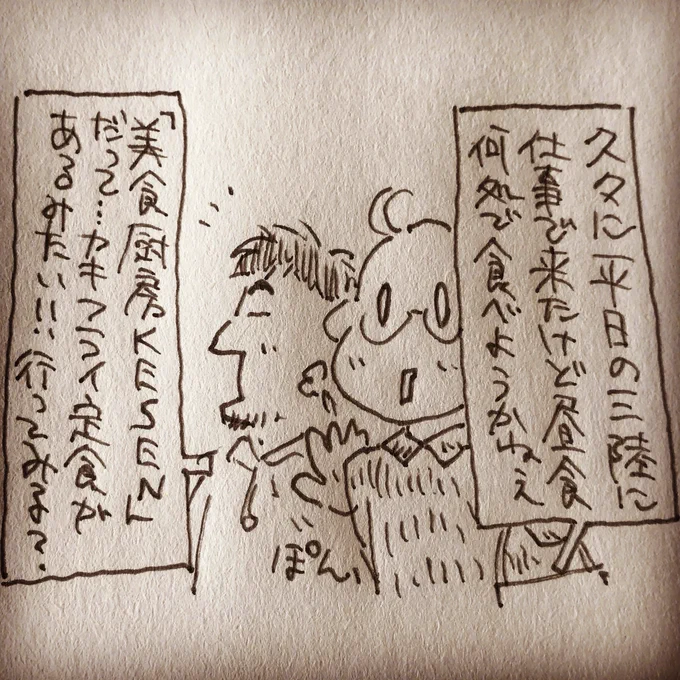 久々に平日の三陸に
仕事で来たけど昼食
何処で食べようかねえ
ぽん
「美食厨房KESEN」
だって…カキフライ定食が
あるみたい!!行ってみる?